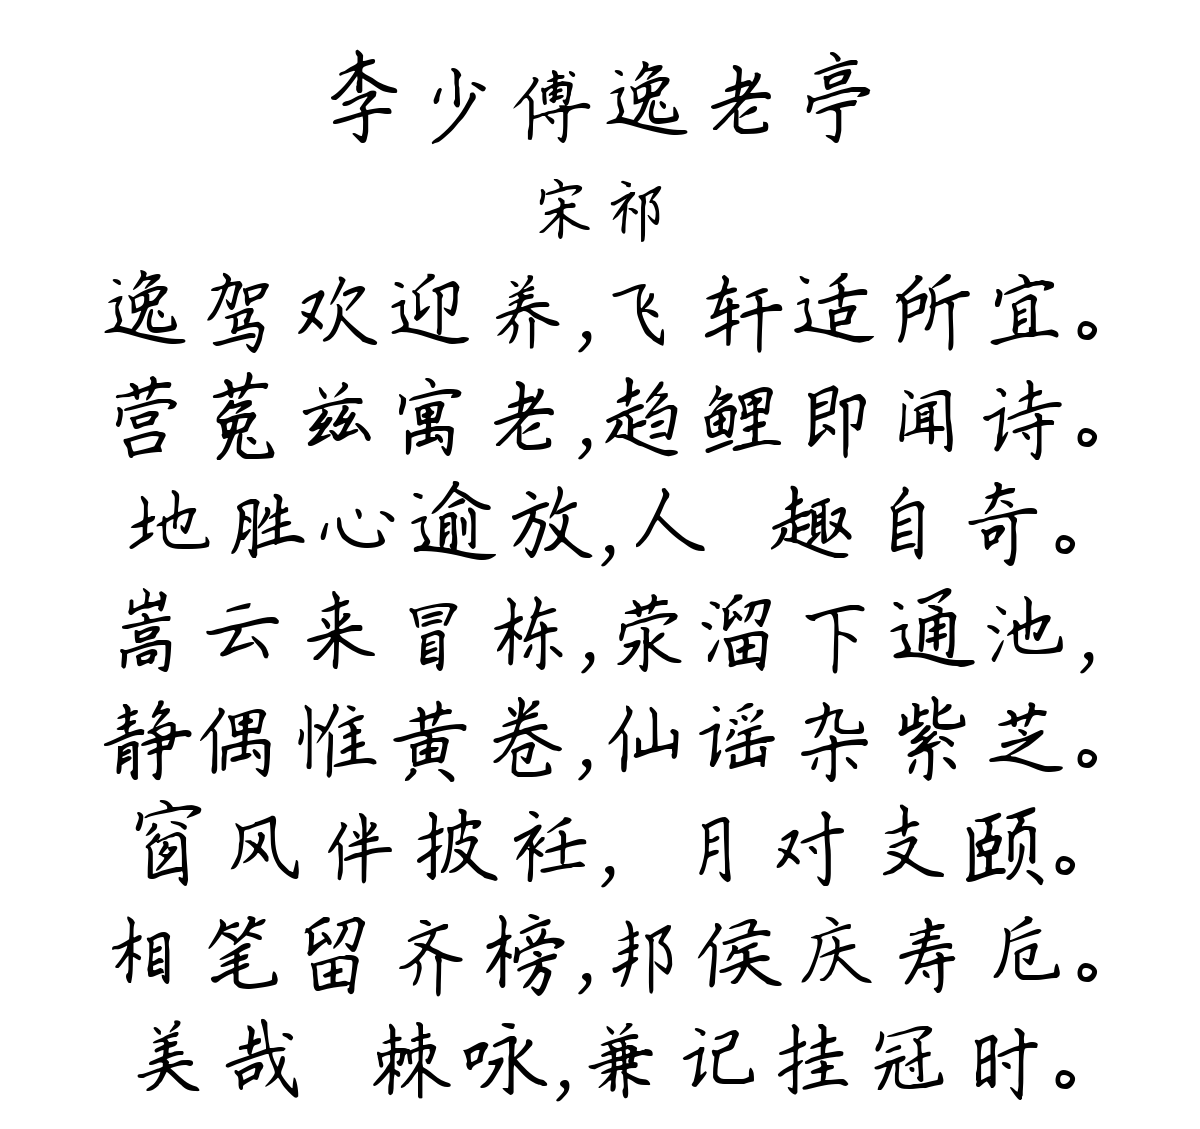 李少傅逸老亭
宋祁
逸驾欢迎养,飞轩适所宜。
营菟兹寓老,趋鲤即闻诗。
地胜心逾放,人 趣自奇。
嵩云来冒栋,荥溜下通池,
静偶惟黄卷,仙谣杂紫芝。
窗风伴披衽, 月对支颐。
相笔留齐榜,邦侯庆寿卮。
美哉 棘咏,兼记挂冠时。